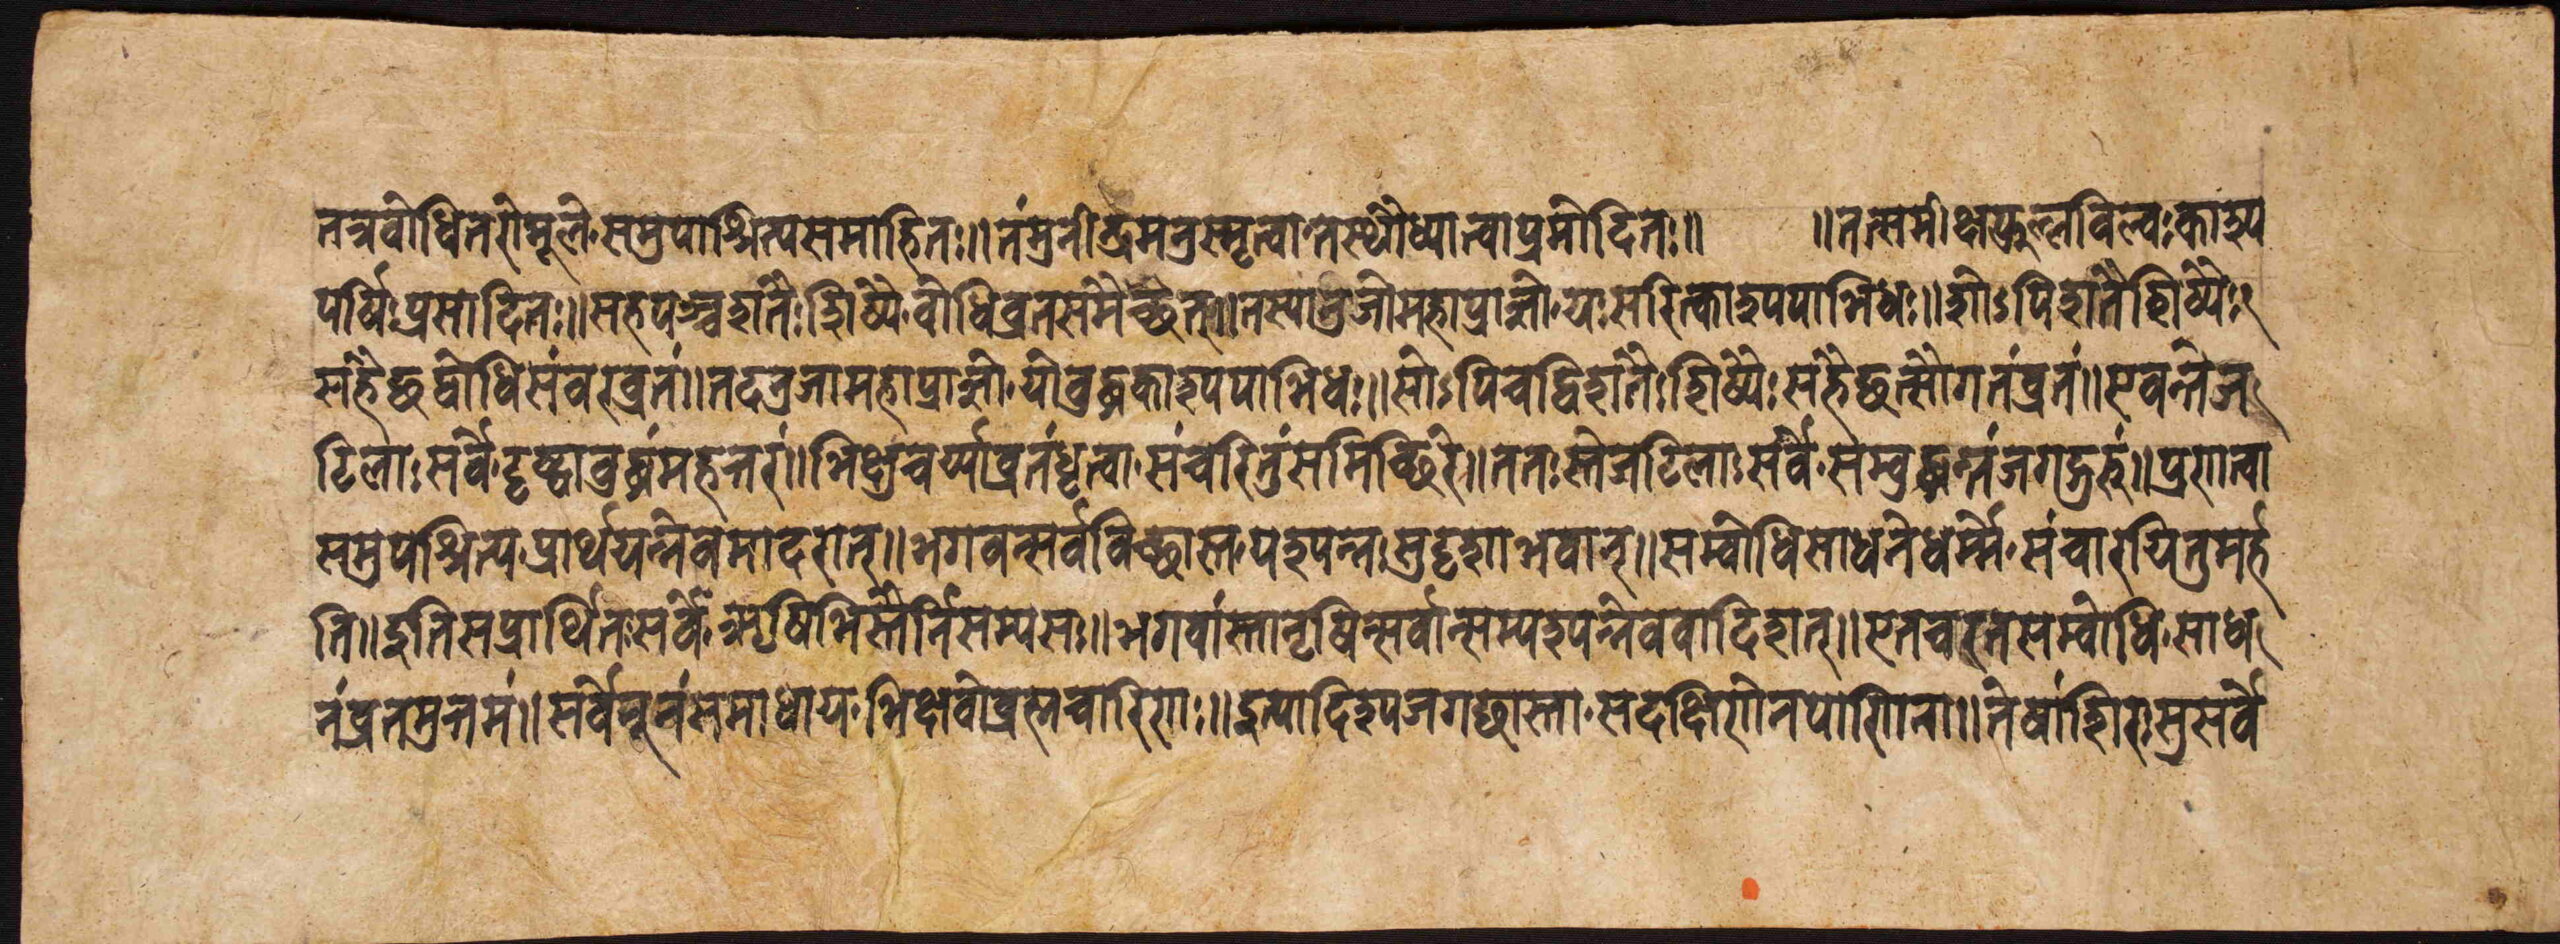 तत्रबोधितरोमूले समुपाश्रित्यसमाहितः॥तंमुनीन्द्रमनुस्मृत्वा तस्थौध्यात्वाप्रमोदितः॥ ॥तत्समीक्षफुल्लविल्वःकाश्यप
पर्षिःप्रसादितः॥सहपञ्चशतैःशिष्यै बोधिव्रतसमैच्छत्॥तस्यानुजोमहाप्राज्ञो यःसरित्काश्यपाभिधः॥शोऽपिशतैशिष्यैः
संहैछद्बोधिसंवरव्रतं॥तदनुजामहाप्राज्ञो योबुद्धकाश्यपाभिधः॥सोऽपिचद्विशतैःशिष्यैः संहैछत्सौगतंव्रतं॥एवन्तेज
टिलाःसर्वे दृष्ट्वाबुद्धंमहत्तरं॥भिक्षुचर्य्याव्रतंधृत्वा संचरितुंसमिच्छिरे॥ततःस्तेजटिलाःसर्वे सम्बुद्धन्तंजगद्गुरुं॥प्रणत्वा
समुपश्रित्य प्रार्थयन्नेवमादरात्॥भगवन्सर्वविच्छास्त पश्यन्न सुदृशाभवान्॥सम्बोधिसाधनेधर्म्मे संचारयितुमर्ह
ति॥इतिसप्रार्थितःसर्वै ऋषिभिस्तैर्निसम्यसः॥भगवांस्तानृषिन्सर्वान्सम्पश्यन्नेववादिशत्॥एतच्चरतसम्बोधि साध
नंव्रतमुत्तमं॥सर्वेयूयंसमाधाय भिक्षवोब्रह्मचारिणः॥इत्यादिश्यजगछास्ता सदक्षिणेनपाणिना॥तेषांशिरसुसर्वे